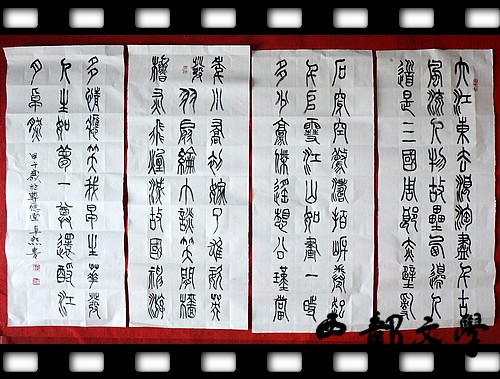 大江東去浪淘盡千古
風流人物故壘西邊人
道是三國周郎赤壁亂
石穿空驚濤拍岸卷起
千堆雪江山如畫一時
多少豪傑遙想公瑾當
年小喬初嫁了雄姿英
發羽扇綸巾談笑間檣
櫓灰飛煙滅故國神游
多情應笑我早生華髮
人生如夢一尊還酹江
月卓然
甲子歲於尊德堂卓然書
西部文學